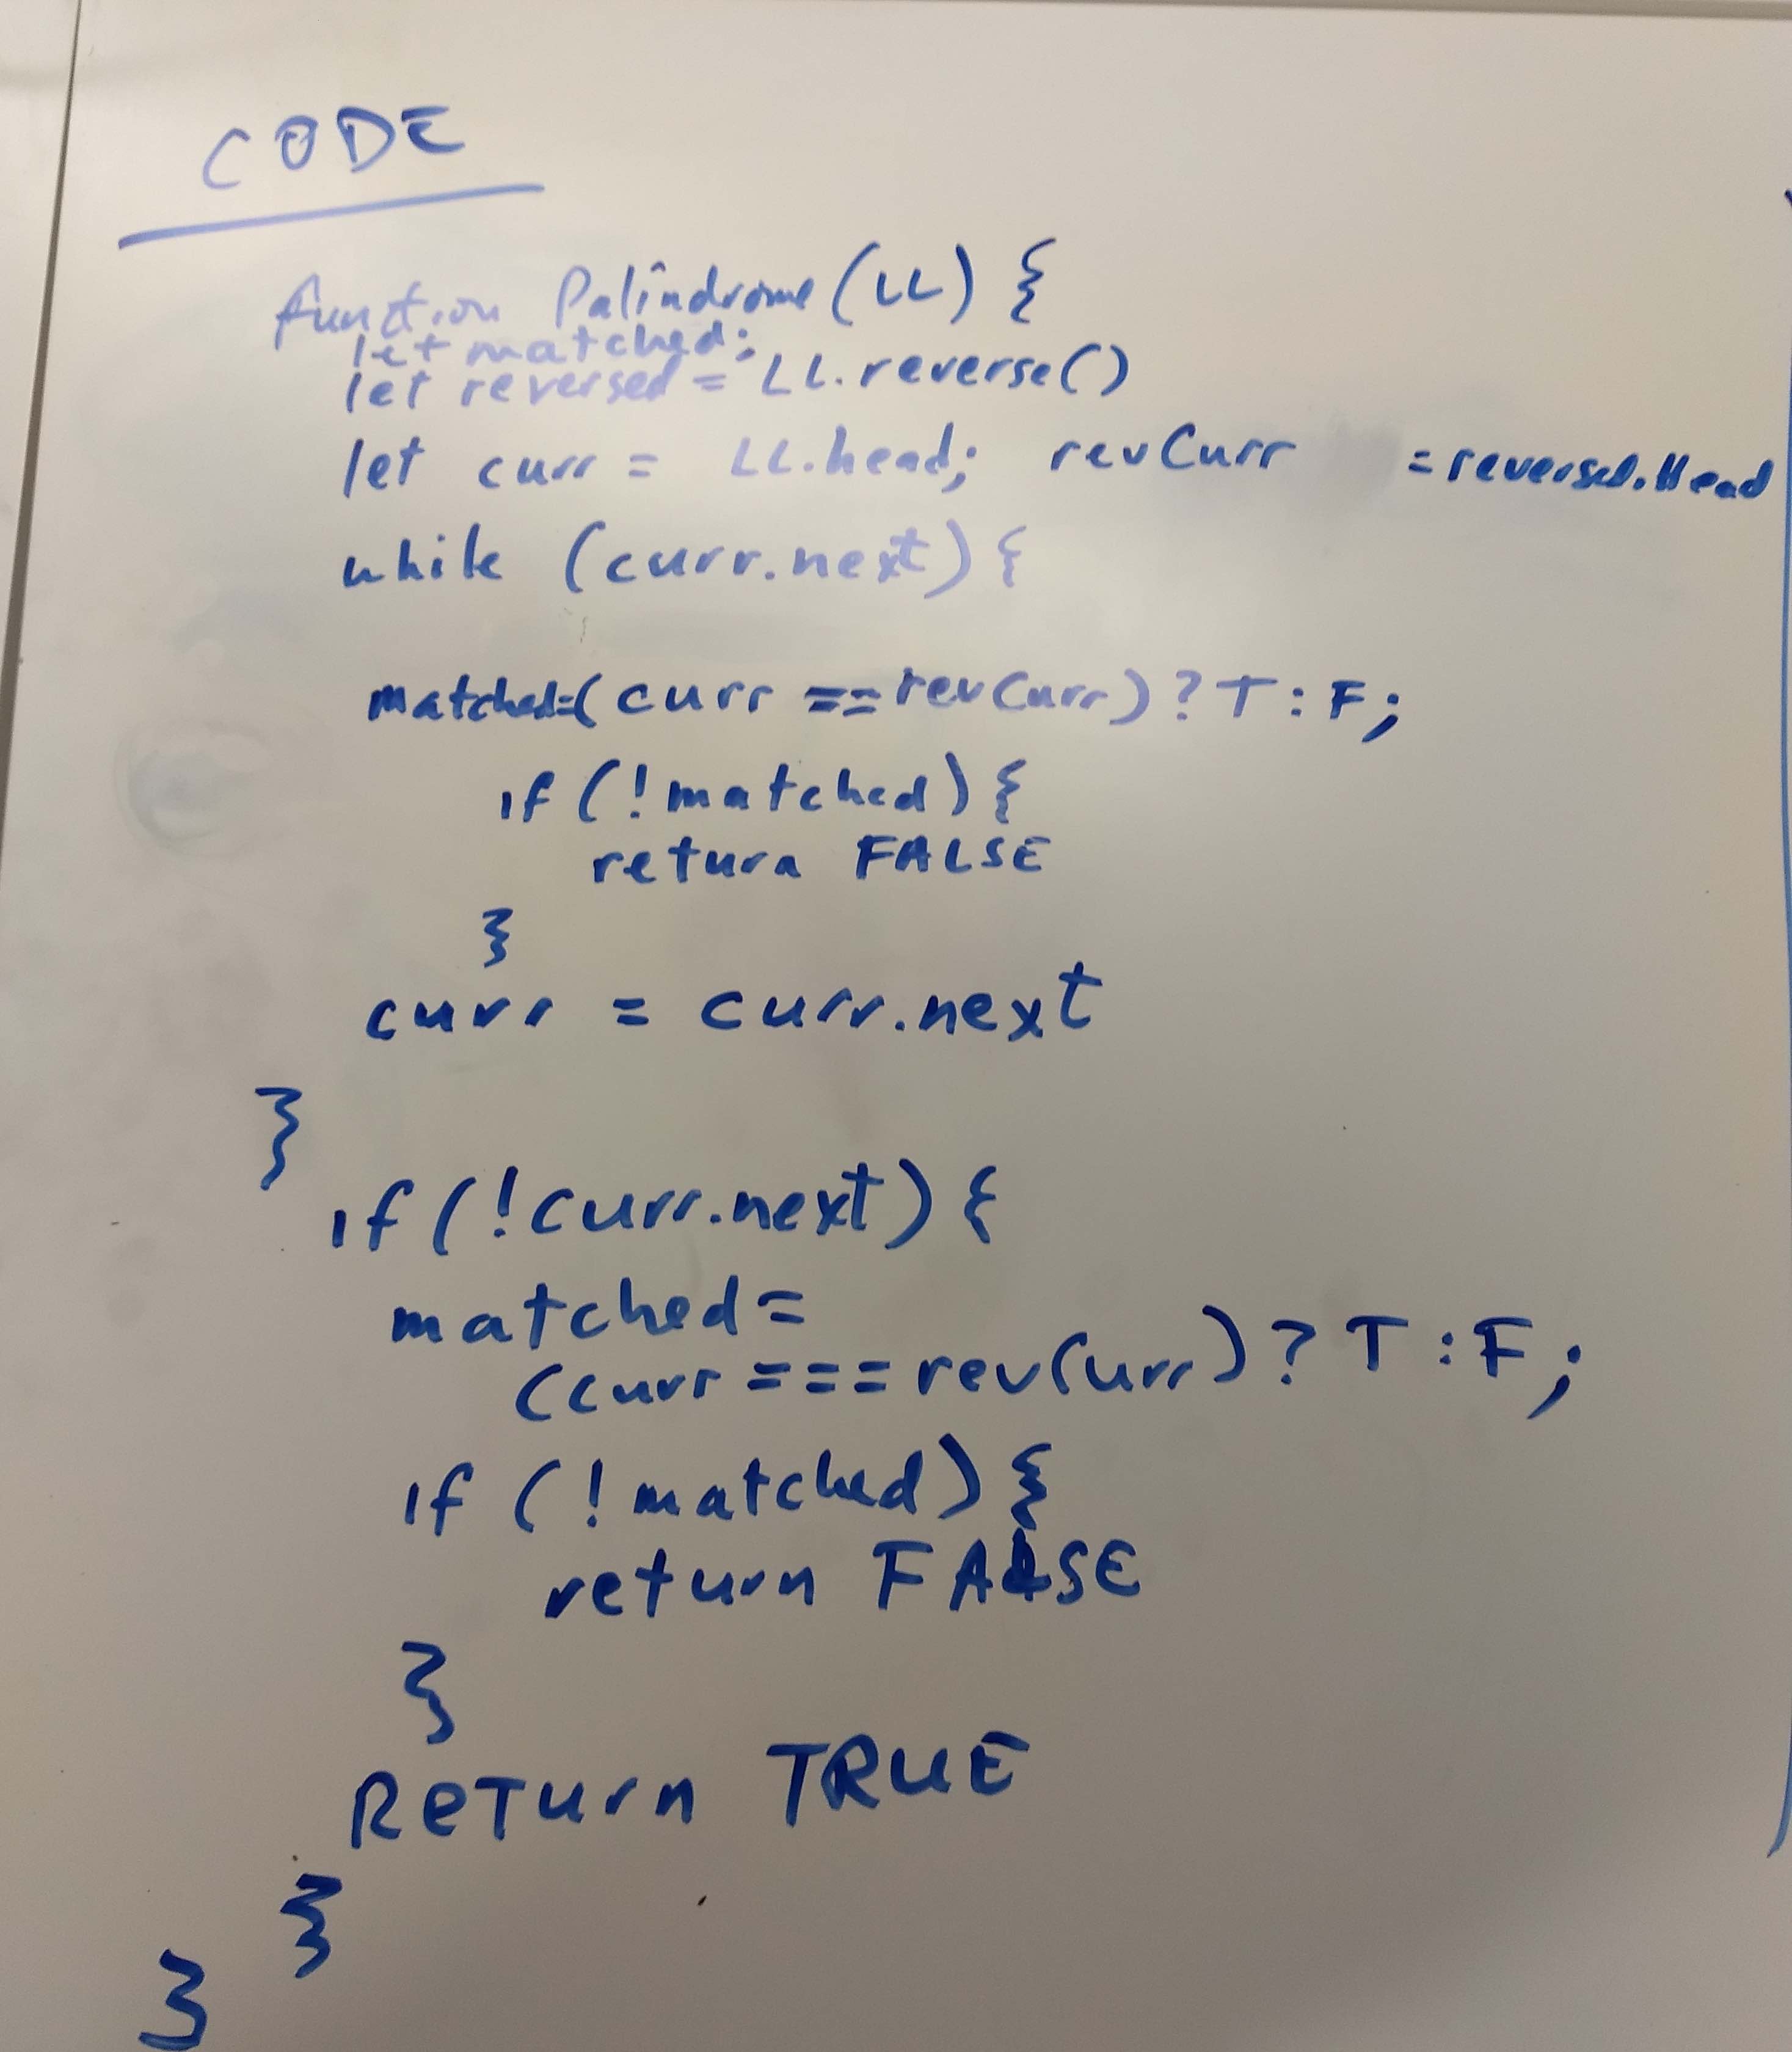 CODE
function Palindrome(LL) {
let matched;
let reversed = LL.reverse()
let curr = LL.head; revCurr = reversed.Head
while (curr.next) {
matched=(curr == revCurr) ? T : F;
if (!matched) {
return FALSE
}
curr = curr.next
}
if (!curr.next) {
matched=
(curr === revCurr) ? T : F;
if (!matched) {
return FALSE
}
ReTurn TRUE
}
}